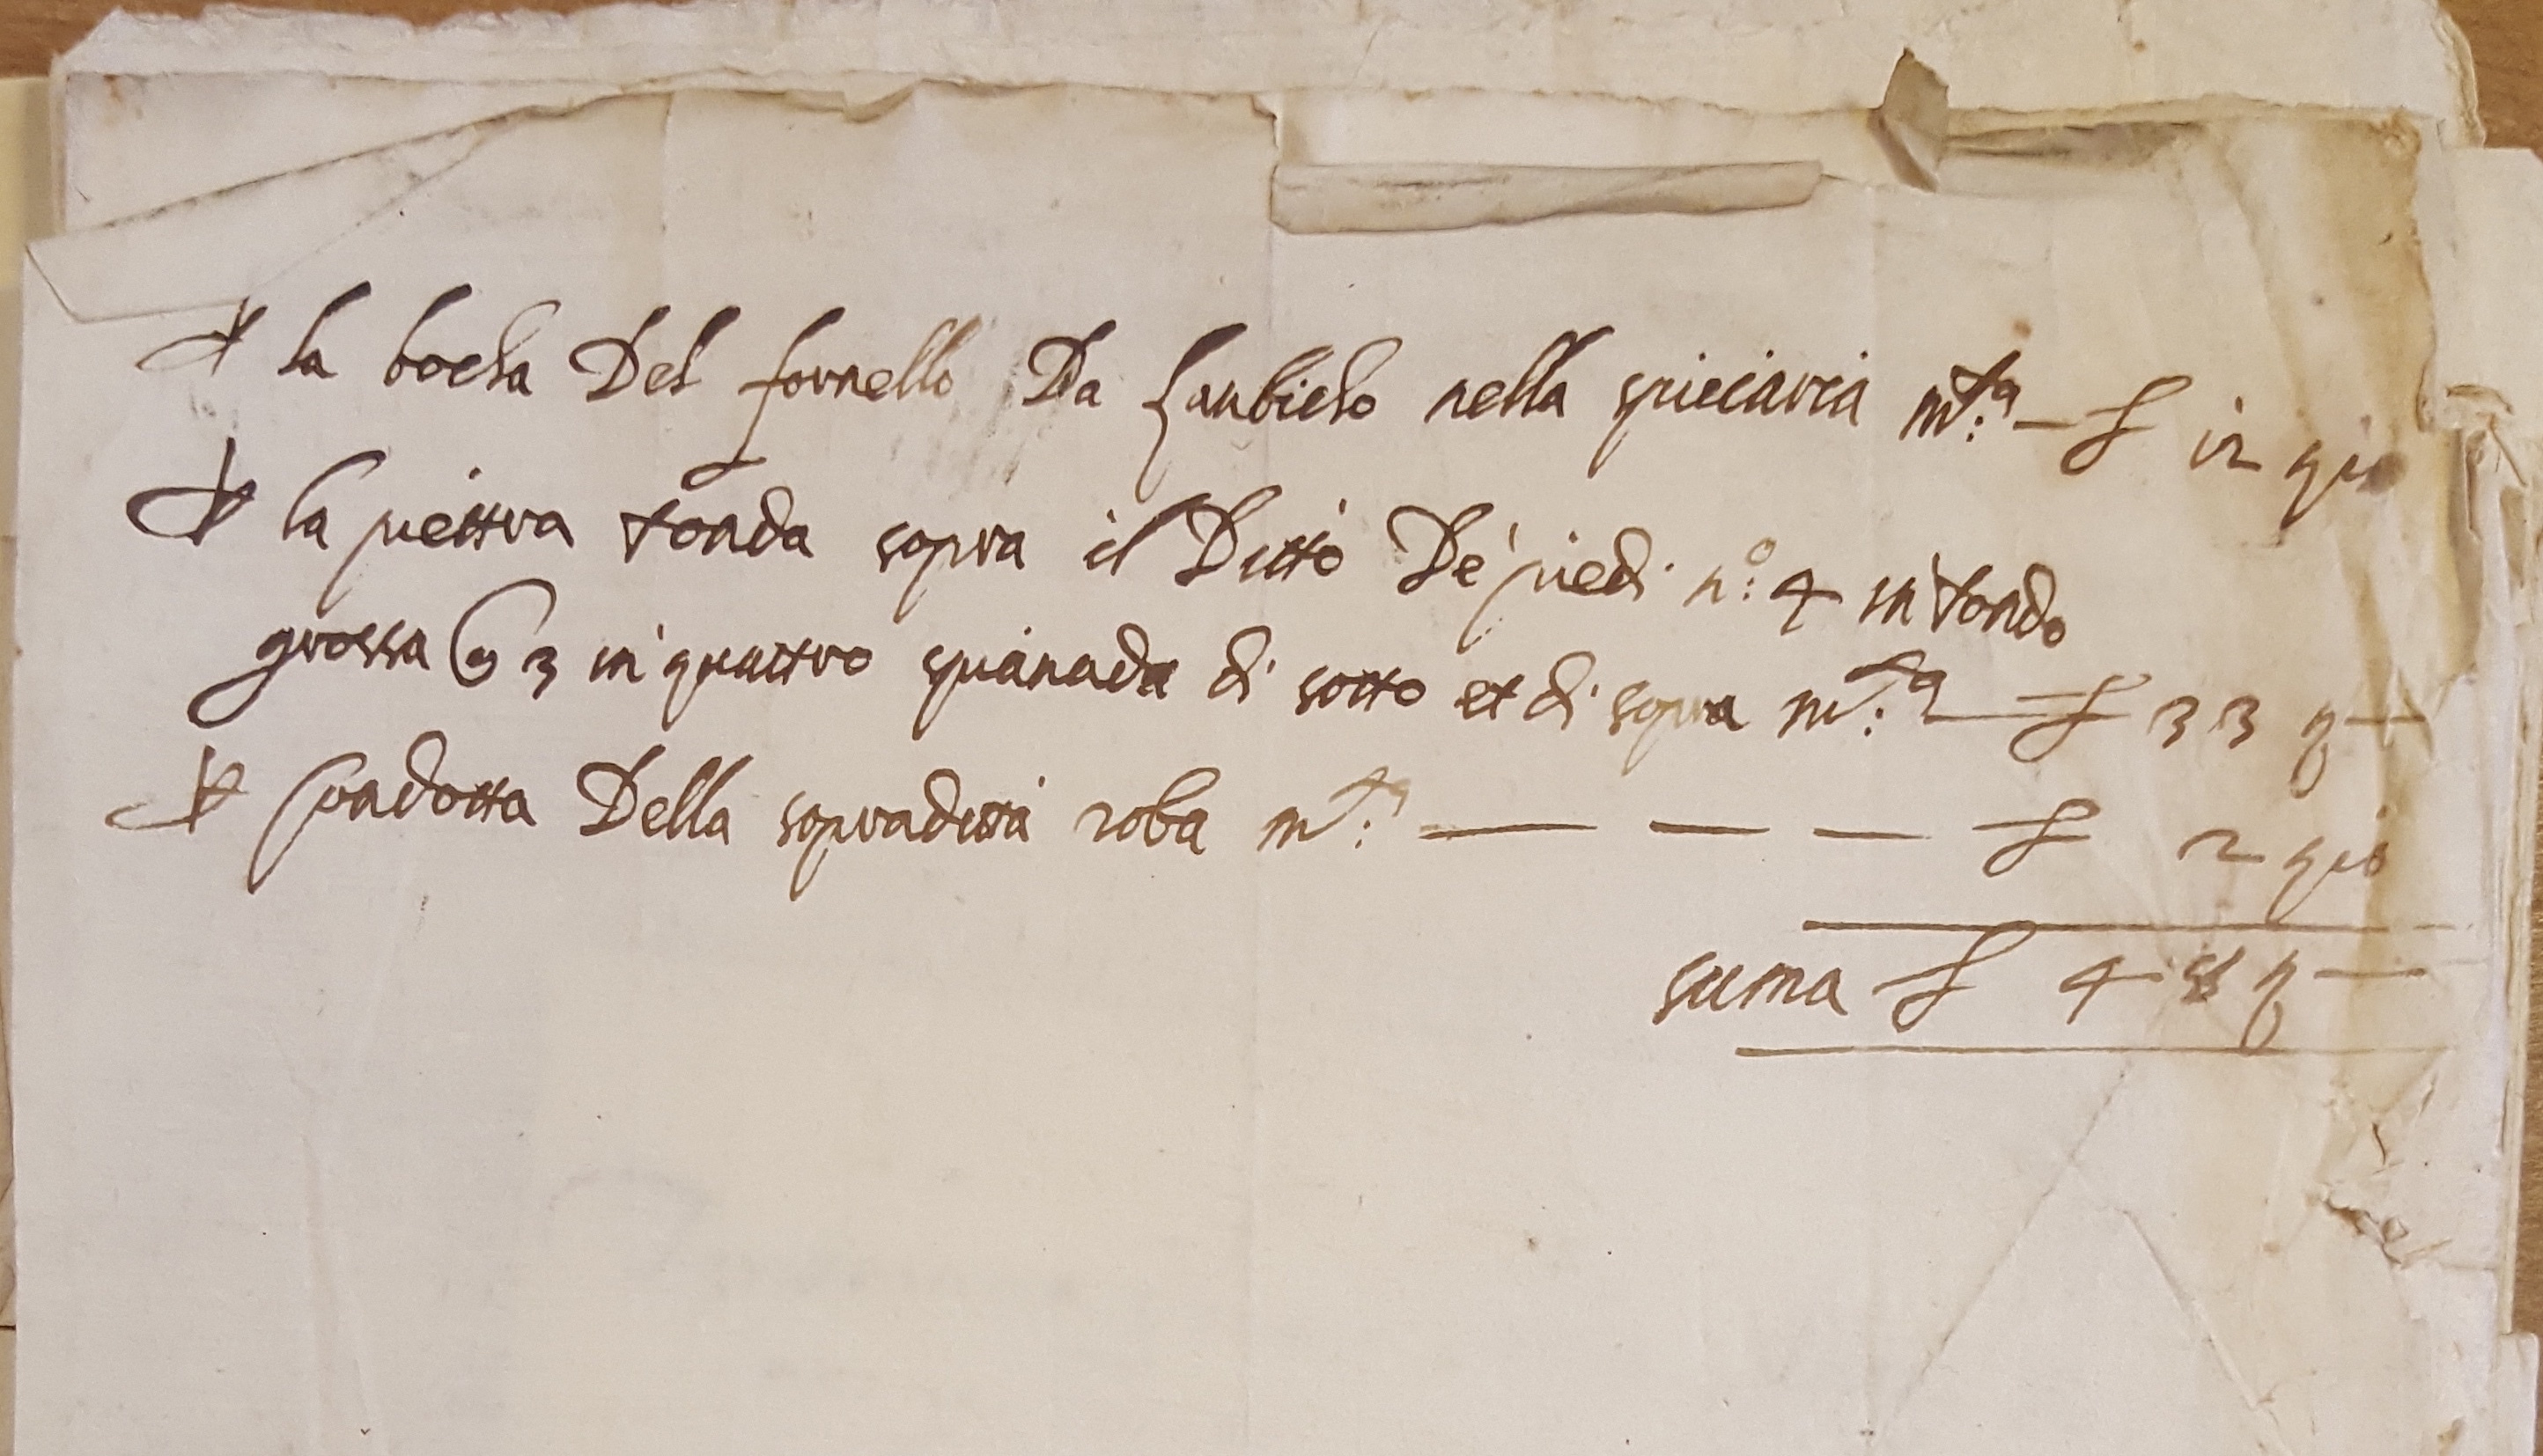 P la bocha del fornello da lanbicho nella spieciaria m.ta — £ 12 g 10
P la piettra tonda sopra il ditto de piedi n.o 4 in tondo
grossa 3 in quattro spianada di sotto et di sopra m.ta — £ 33 g —
P condotta della sopraditta roba m.ta — — — £ 2 g 10
suma £ 48 g —